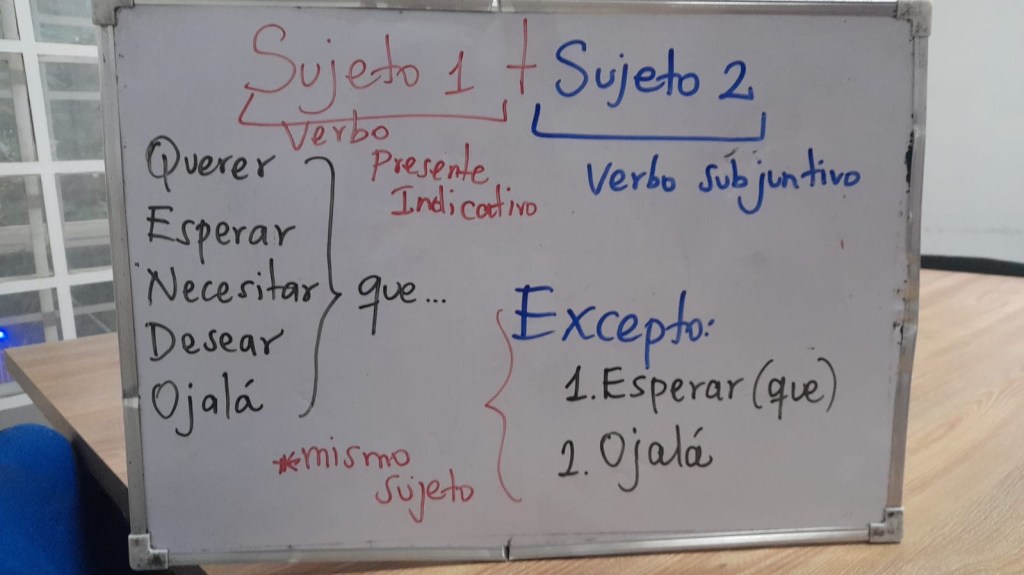 Sujeto 1 + Sujeto 2
Verbo
Presente
Indicativo
Verbo subjuntivo
Querer
Esperar
Necesitar
Desear
Ojalá
que...
Excepto:
1. Esperar (que)
2. Ojalá
*mismo
sujeto